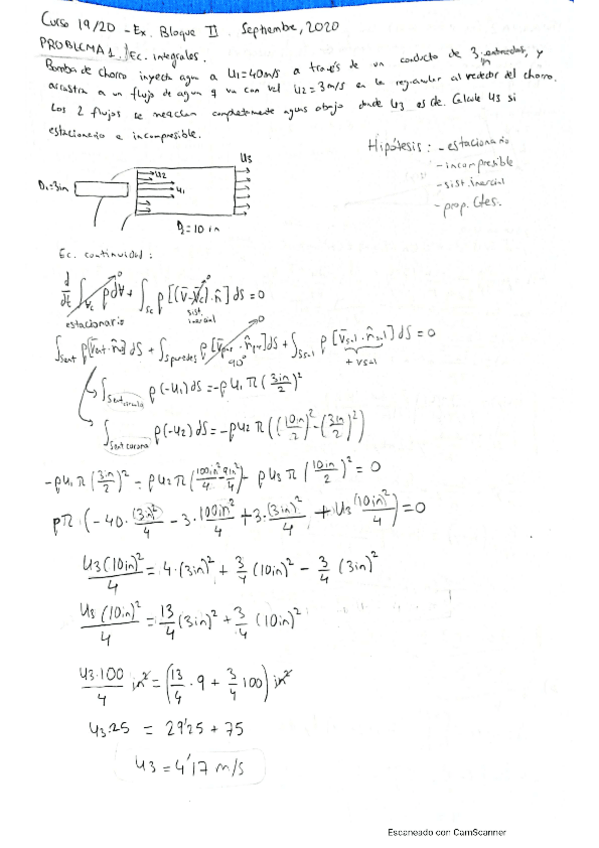 Curso 19/20 - Ex. Bloque II Septiembre, 2020
PROBLEMA 1 Ec. integrales.
Bomba de chorro inyecta agua a U1=40m/s a través de un conducto de 3 in y
arrastra a un flujo de agua q va con vel U2=3m/s en la región alrededor del chorro.
Los 2 flujos se mezclan completamente aguas abajo donde U3 es cte. Calcule U3 si
estacionario e incompresible.
Hipótesis: - estacionario
- incompresible
- sist. inercial
- prop. Ctes.
U3
D1=3in
U2
U1
D2=10 in
Ec. continuidad:
d/dt ∫Vc ρdV + ∫Sc ρ[(v̄-v̄c)·n̂]dS=0
estacionario
sist. inercial
∫Sent ρ[v̄ent·n̂]dS + ∫Sparedes ρ[v̄par·n̂]dS + ∫Ssal ρ[v̄sal·n̂sal]dS=0
90°
+ vsal
∫Sent circulo ρ(-U1)dS=-ρU1 π(3in/2)²
∫Sent corona ρ(-U2)dS=-ρU2 π((10in/2)²-(3in/2)²)
-ρU1 π(3in/2)² - ρU2 π(100in²/4 - 9in²/4) - ρU3 π(10in/2)² = 0
ρπ·(-40·(3in)²/4 - 3·100in²/4 + 3·(3in)²/4 + U3(10in)²/4)=0
U3(10in)²/4 = 4·(3in)² + 3/4 (10in)² - 3/4 (3in)²
U3(10in)²/4 = 13/4 (3in)² + 3/4 (10in)²
U3·100/4 in² = (13/4 · 9 + 3/4 100) in²
U3·25 = 29'25 + 75
U3 = 4'17 m/s
Escaneado con CamScanner